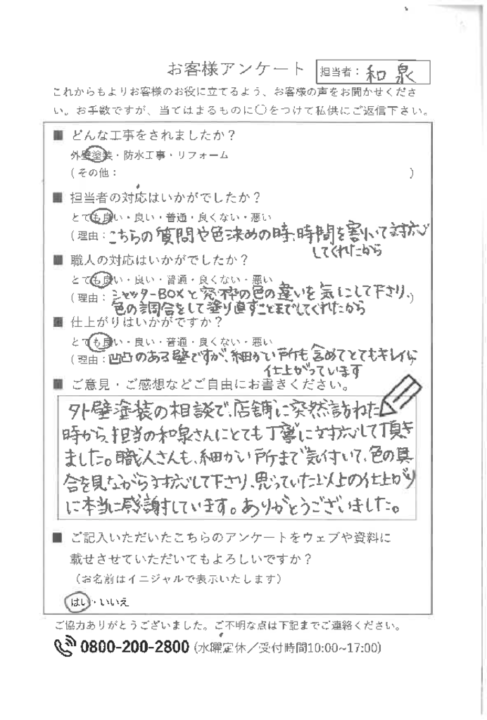 お客様アンケート
担当者: 和泉
これからもよりお客様のお役に立てるよう、お客様の声をお聞かせくださ
い。お手数ですが、当てはまるものに○をつけて私供にご返信下さい。
■ どんな工事をされましたか?
外壁塗装・防水工事・リフォーム
(その他: )
■ 担当者の対応はいかがでしたか?
とても良い・良い・普通・良くない・悪い
(理由:こちらの質問や色決めの時、時間を割いて対応
してくれたから
■ 職人の対応はいかがでしたか?
とても良い・良い・普通・良くない・悪い
(理由:シャッターBOXと窓枠の色の違いを気にして下さり、)
色の調合をして塗り直すことまでしてくれたから
■ 仕上がりはいかがですか?
とても良い・良い・普通・良くない・悪い
(理由:凹凸のある壁ですが、細かい所も含めてとてもキレイに
仕上がっています
■ ご意見・ご感想などご自由にお書きください。
外壁塗装の相談で、店舗に突然訪ねた
時から、担当の和泉さんにとても丁寧に対応して頂き
ました。職人さんも、細かい所まで気付いて、色の具
合を見ながら対応して下さり、思っていた以上の仕上がり
に本当に感謝しています。ありがとうございました。
■ ご記入いただいたこちらのアンケートをウェブや資料に
載せさせていただいてもよろしいですか?
(お名前はイニシャルで表示いたします)
はい・いいえ
ご協力ありがとうございました。ご不明な点は下記までご連絡ください。
0800-200-2800 (水曜定休/受付時間10:00~17:00)